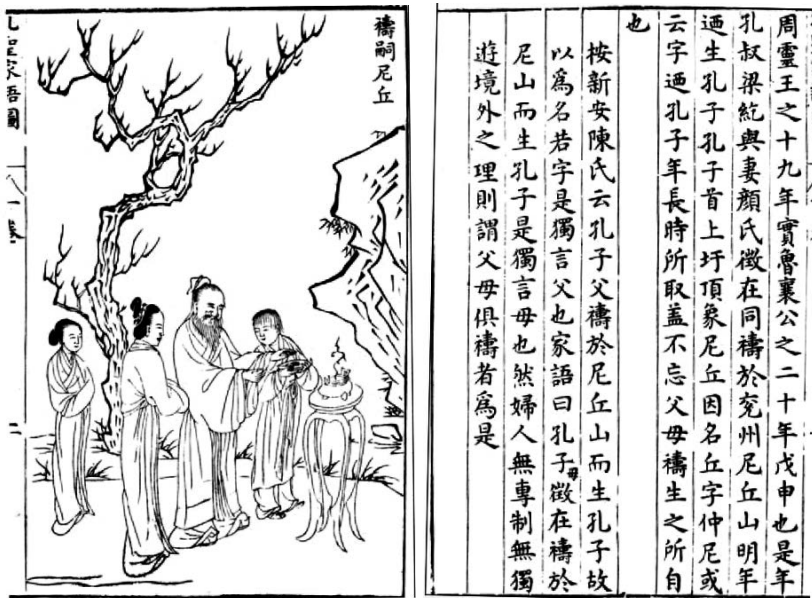 周靈王之十九年實魯襄公之二十年戊申也是年
孔叔梁紇與妻顏氏徵在同禱於兗州尼丘山明年
廼生孔子孔子首上圩頂象尼丘因名丘字仲尼或
云字廼孔子年長時所取盖不忘父母禱生之所自
也
按新安陳氏云孔子父禱於尼丘山而生孔子故
以爲名若字是獨言父也家語曰孔子母徵在禱於
尼山而生孔子是獨言母也然婦人無專制無獨
遊境外之理則謂父母俱禱者爲是
禱嗣尼丘
孔聖家語圖
二